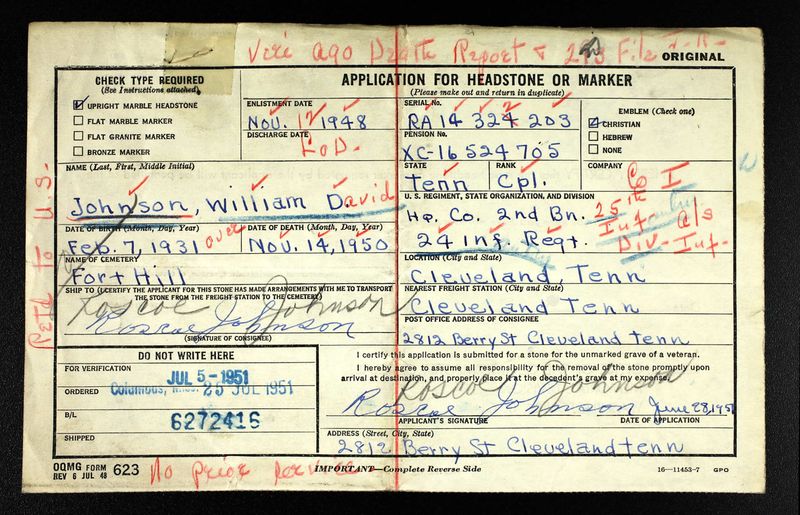 Veri ago Death Report & 293 File
ORIGINAL
CHECK TYPE REQUIRED
(See Instructions attached)
UPRIGHT MARBLE HEADSTONE
FLAT MARBLE MARKER
FLAT GRANITE MARKER
BRONZE MARKER
APPLICATION FOR HEADSTONE OR MARKER
(Please make out and return in duplicate)
ENLISTMENT DATE
Nov. 12 1948
DISCHARGE DATE
SERIAL No.
RA 14 324 203
PENSION No.
XC-16 524 705
EMBLEM (Check one)
CHRISTIAN
HEBREW
NONE
NAME (Last, First, Middle Initial)
Johnson, William David
STATE
Tenn
RANK
Cpl.
COMPANY
Co I
U.S. REGIMENT, STATE ORGANIZATION, AND DIVISION
Hq. Co. 2nd Bn. 25th
24 Inf. Regt.
Inf-
Div- Inf-
a/s
DATE OF BIRTH (Month, Day, Year)
Feb. 7, 1931
over
DATE OF DEATH (Month, Day, Year)
Nov. 14, 1950
NAME OF CEMETERY
Fort Hill
LOCATION (City and State)
Cleveland, Tenn
SHIP TO (I CERTIFY THE APPLICANT FOR THIS STONE HAS MADE ARRANGEMENTS WITH ME TO TRANSPORT
THE STONE FROM THE FREIGHT STATION TO THE CEMETERY)
Roscoe Johnson
Roscoe Johnson
(SIGNATURE OF CONSIGNEE)
NEAREST FREIGHT STATION (City and State)
Cleveland Tenn
POST OFFICE ADDRESS OF CONSIGNEE
2812 Berry St Cleveland Tenn
DO NOT WRITE HERE
FOR VERIFICATION
JUL 5-1951
ORDERED
Columbus, Miss. 25 JUL 1951
B/L
6272416
SHIPPED
I certify this application is submitted for a stone for the unmarked grave of a veteran.
I hereby agree to assume all responsibility for the removal of the stone promptly upon
arrival at destination, and properly place it at the decedent's grave at my expense.
Roscoe Johnson
Roscoe Johnson June 28, 1951
APPLICANT'S SIGNATURE
DATE OF APPLICATION
ADDRESS (Street, City, State)
2812 Berry St Cleveland tenn
OQMG FORM
REV 6 JUL 48
623
No prior service
IMPORTANT—Complete Reverse Side
16—11453-7 GPO
Retd to U.S.